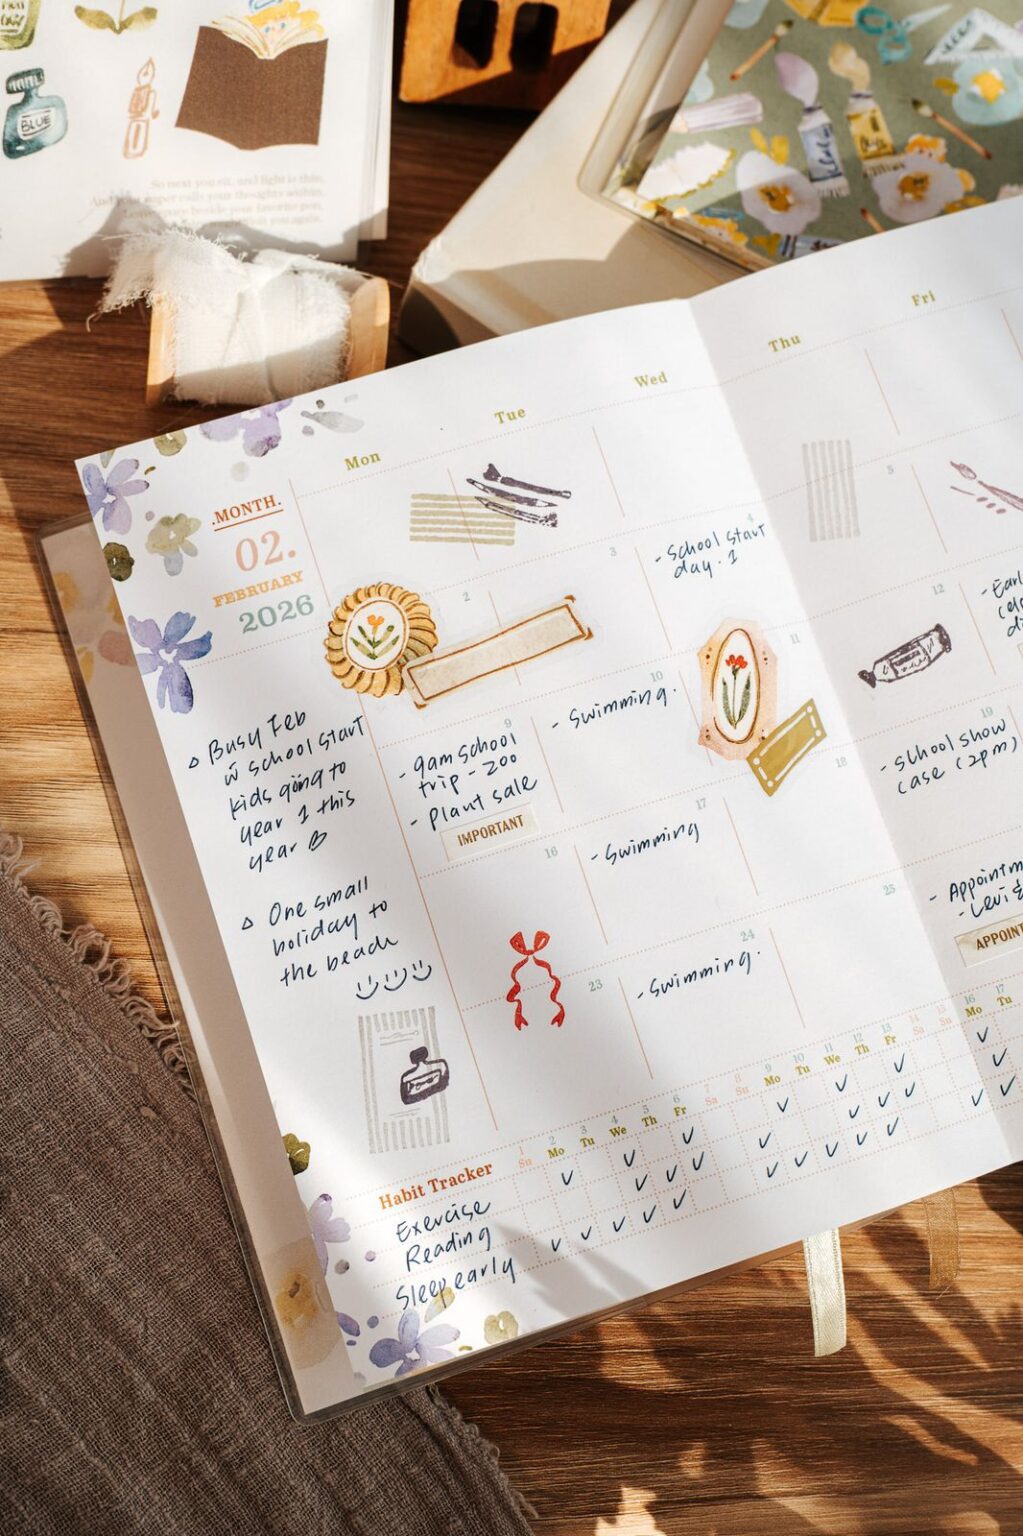 BLUE
So next you sit, and light is thin,
your favorite pen,
you again.
Mon
Tue
Wed
Thu
Fri
.MONTH.
02.
FEBRUARY
2026
2
3
4
5
- School start
day. 1
△ Busy Feb
w school start
kids going to
year 1 this
year
△ One small
holiday to
the beach
9
- 9am school
trip - zoo
- Plant sale
IMPORTANT
10
- Swimming.
11
12
16
17
- Swimming
18
19
- School show
case (2pm)
23
24
- Swimming.
25
APPOINT
Habit Tracker
1 2 3 4 5 6 7 8 9 10 11 12 13 14 15 16 17
Su Mo Tu We Th Fr Sa Su Mo Tu We Th Fr Sa Su Mo Tu
Exercise
Reading
Sleep early